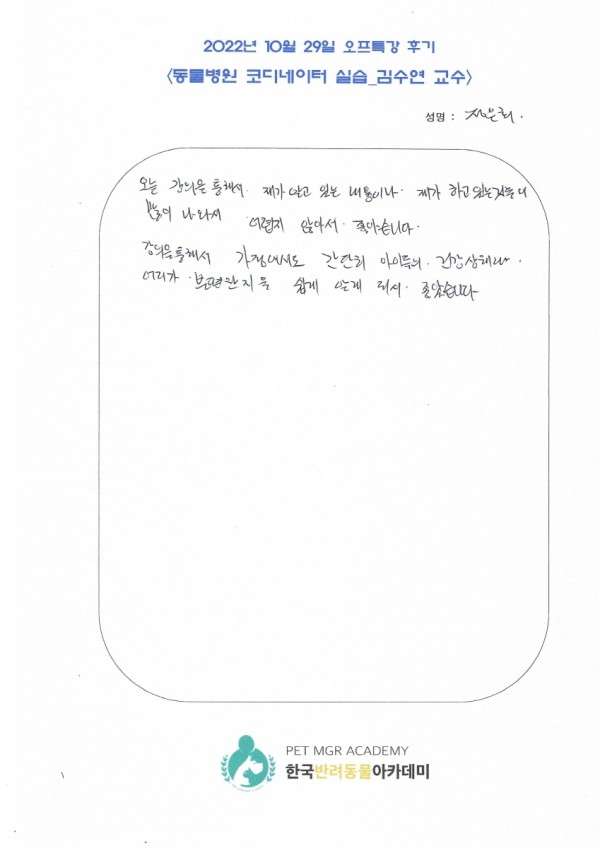 2022년 10월 29일 오프특강 후기
<동물병원 코디네이터 실습_김수연 교수>
성명 :
오늘 강의을 통해서. 제가 알고 있는 내용이나. 제가 하고 있는것들이
많이 나와서 어렵지 않아서. 좋아습니다.
강의을통해서 가정에서도 간단히 아이들의. 건강상태나.
어디가. 불편한지을 쉽게 알게 되서. 좋았습니다
PET MGR ACADEMY
한국반려동물아카데미